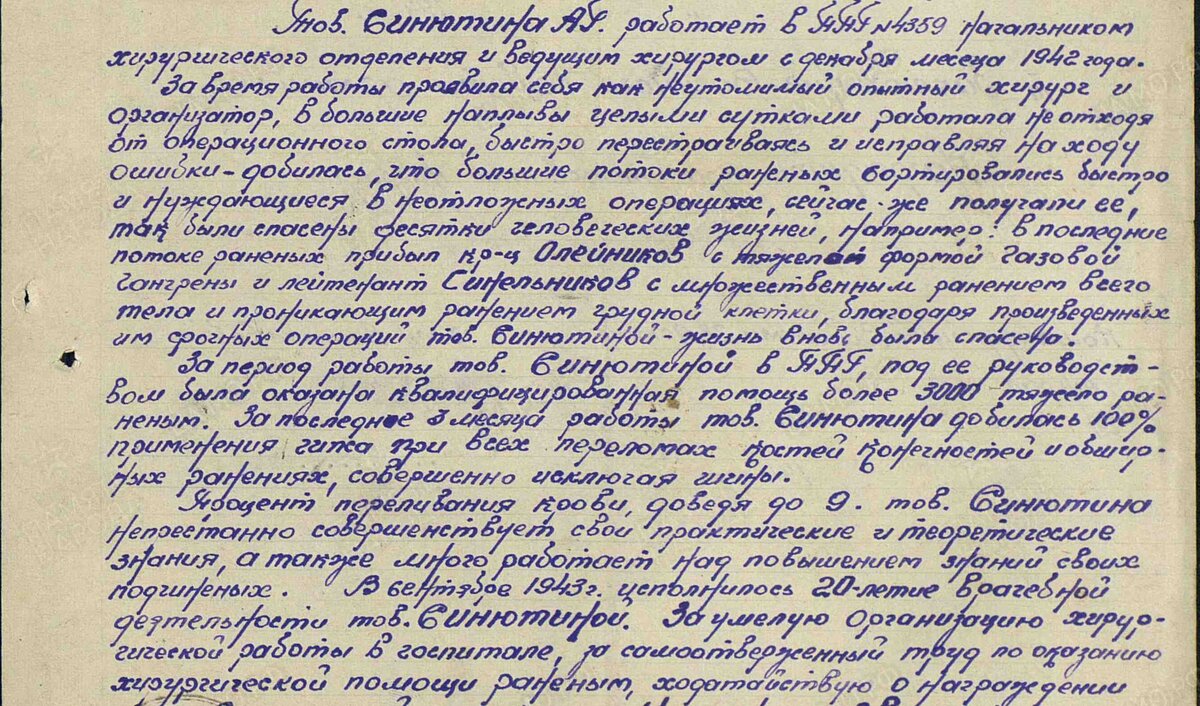 Тов. Синютина А.Г. работает в ППГ №4359 начальником
хирургического отделения и ведущим хирургом с декабря месеца 1942 года.
За время работы проявила себя как неутомимый опытный хирург и
организатор, в большие наплывы целыми сутками работала не отходя
от операционного стола, быстро перестраиваясь и исправляя на ходу
ошибки - добилась, что большие потоки раненых сортировались быстро
и нуждающиеся в неотложных операциях, сейчас-же получали ее,
так были спасены десятки человеческих жизней, например: в последние
потоке раненых прибыл кр-ц Олейников с тяжелой формой газовой
гангрены и лейтенант Синельников с множественным ранением всего
тела и проникающим ранением грудной клетки, благодаря произведенных
им срочных операций тов. Синютиной - жизнь вновь была спасена.
За период работы тов. Синютиной в ППГ, под ее руководст-
вом была оказана квалифицированная помощь более 3000 тяжело ра-
неным. За последние 3 месяца работы тов. Синютина добилась 100%
применения гипса при всех переломах костей конечностей и обшир-
ных ранениях, совершенно исключая шины.
Процент переливания крови, доведя до 9. тов. Синютина
непрестанно совершенствует свои практические и теоретические
знания, а также много работает над повышением знаний своих
подчиненых. В сентябре 1943г. исполнилось 20-летие врачебной
деятельности тов. Синютиной. За умелую организацию хирур-
гической работы в госпитале, за самоотверженный труд по оказанию
хирургической помощи раненым, ходатайствую о награждении